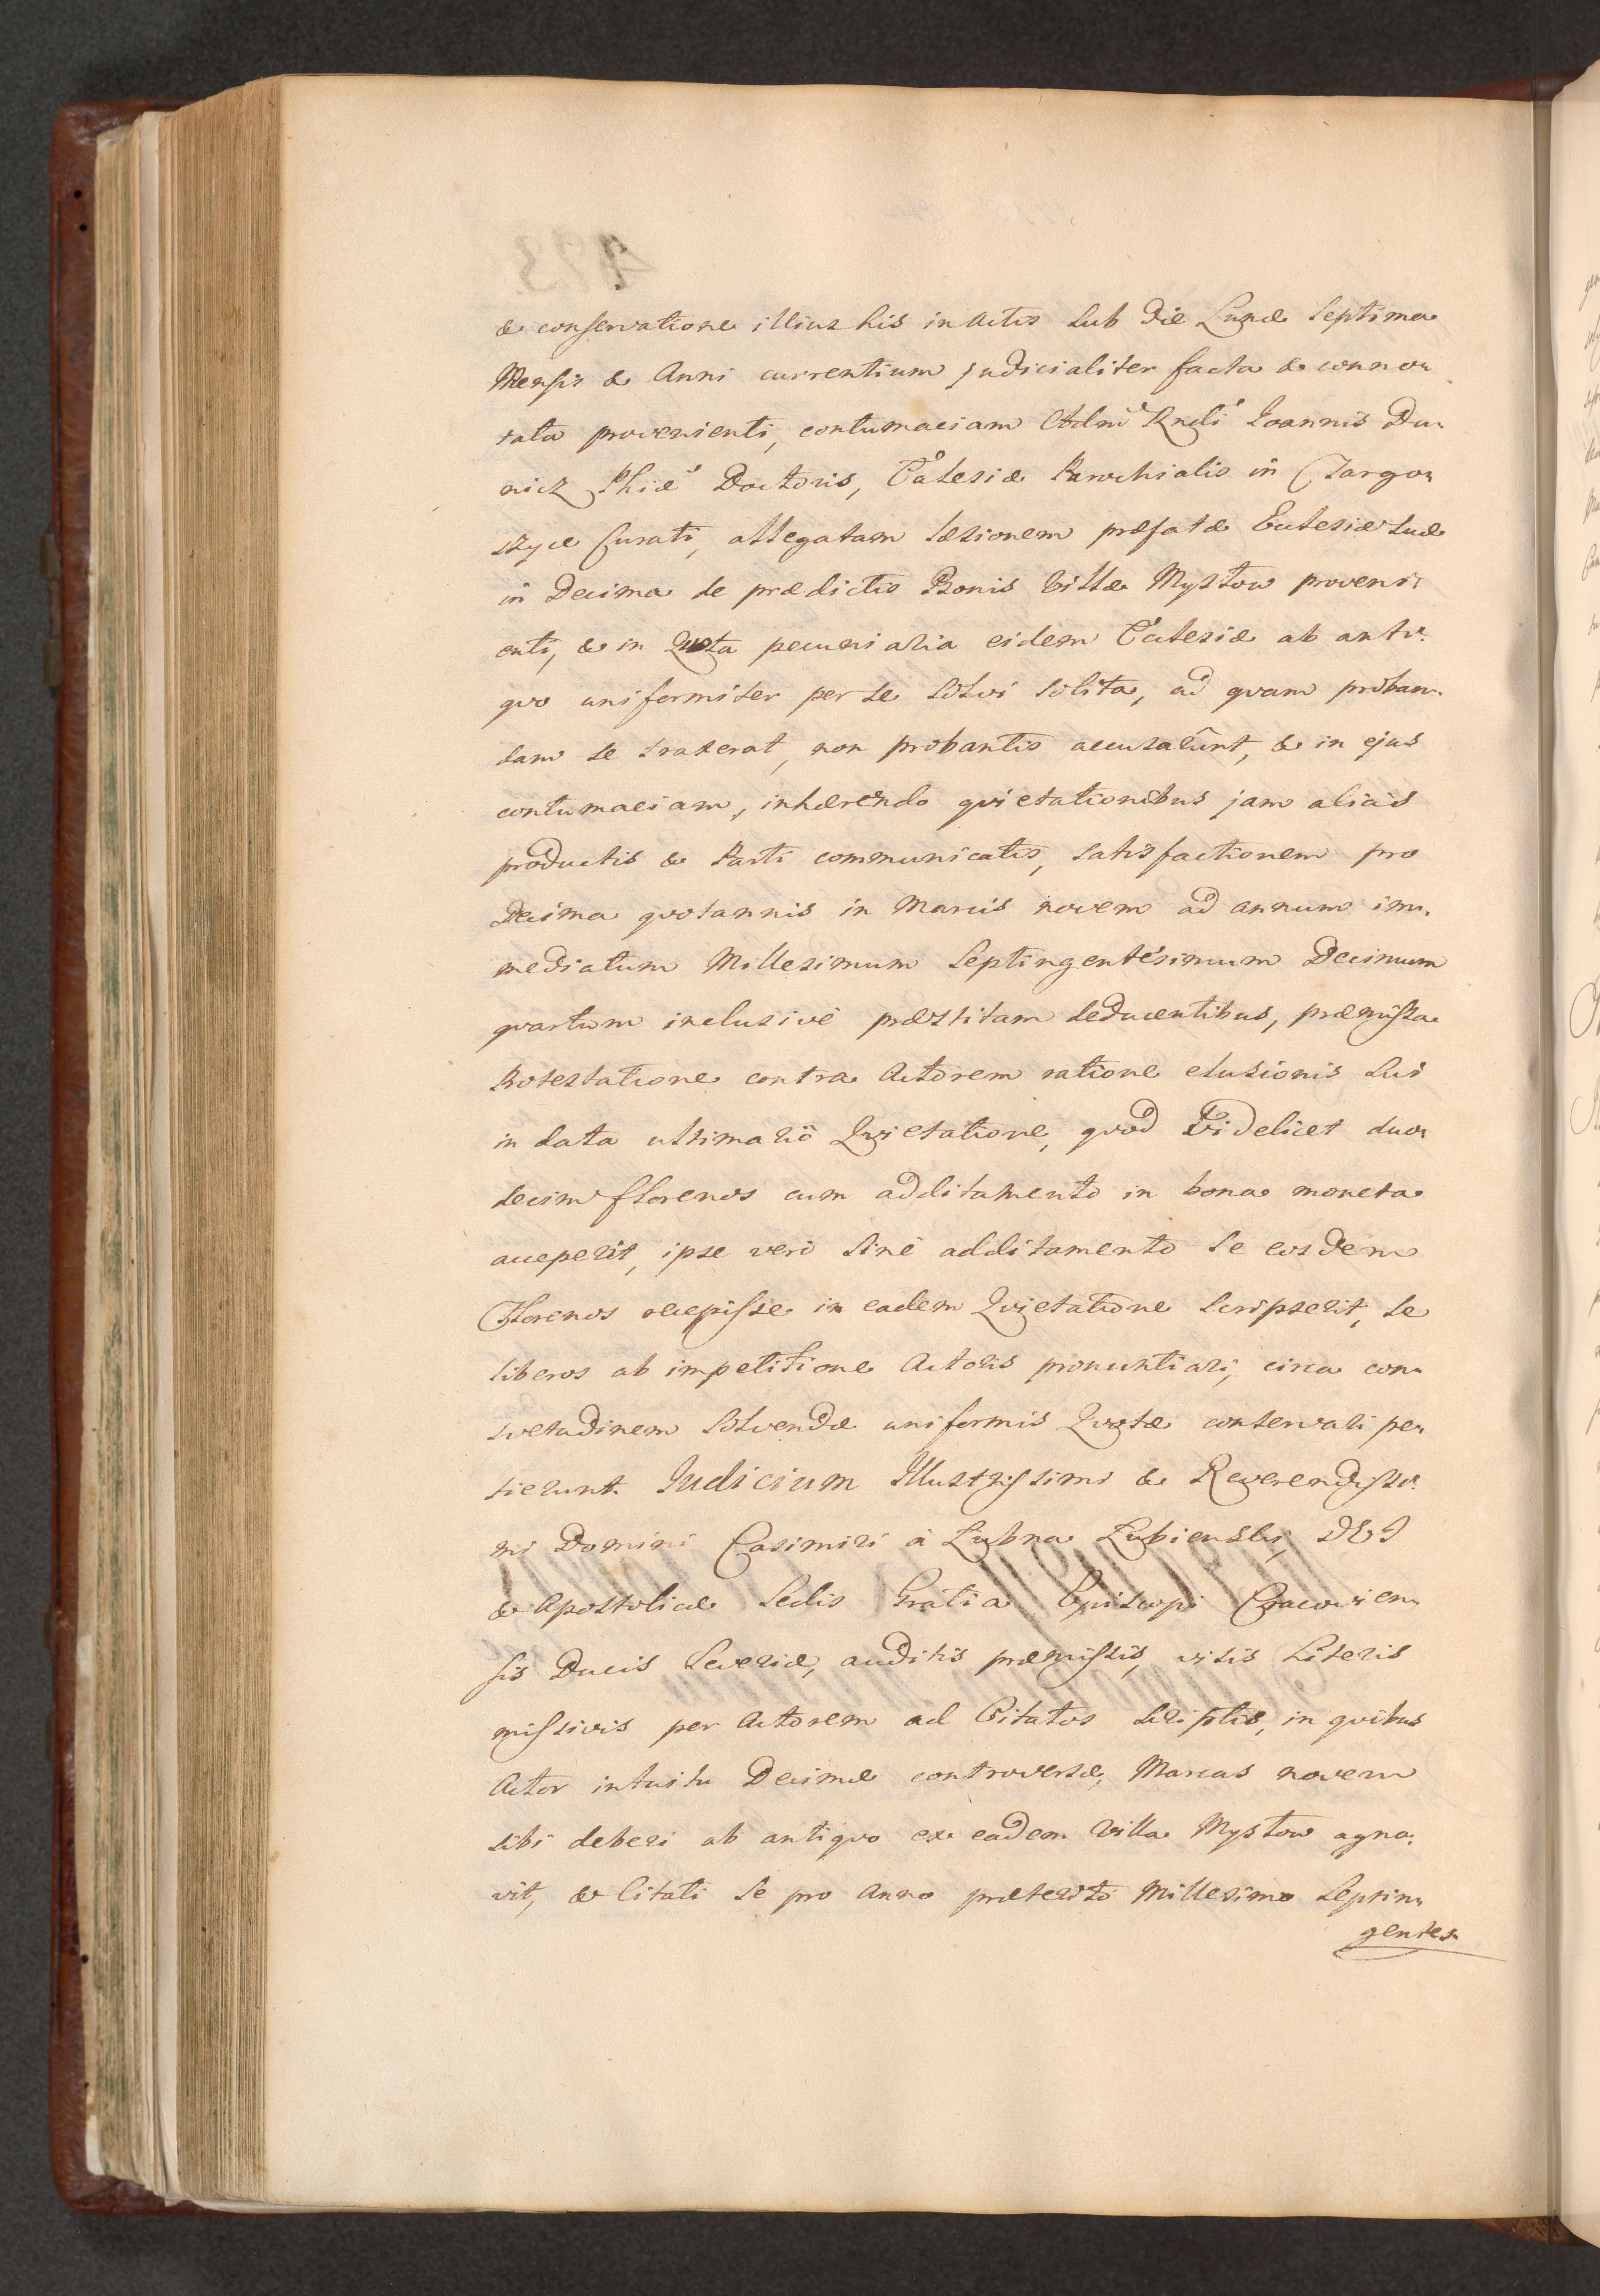 & conservatione illius his in Actis sub die Lunæ Septima
Mensis & Anni currentium judicialiter facta & conno-
tata provenienti, contumaciam Adm Rndi Joannis Du-
nicz Phiæ Doctoris, Ecclesiæ Parochialis in Targo-
szyce Curati, allegatam læsionem præfatæ Ecclesiæ suæ
in Decima de prædictis Bonis Villæ Mysłow proveni-
enti, & in Quota pecuniaria eidem Ecclesiæ ab anti-
quo uniformiter per se solvi solita, ad quam proban-
dam se traxerat, non probantis accusarunt, & in ejus
contumaciam, inhærendo quietationibus jam aliàs
productis & Parti communicatis, satisfactionem pro
Decima quotannis in Marcis novem ad annum im-
mediatum Millesimum Septingentesimum Decimum
quartum inclusivè præstitam deducentibus, præmissa
Protestatione contra Actorem ratione elusionis sui
in data ultimariò Quietatione, quod Videlicet duo-
decim florenos cum additamento in bona moneta
acceperit, ipse verò sinè additamento se eosdem
Florenos recepisse in eadem Quietatione scripserit, se
liberos ab impetitione Actoris pronuntiari, circa con-
svetudinem solvendæ uniformis Quotæ conservari pe-
tierunt. Judicium Illustrissimi & Reverendissi-
mi Domini Casimiri à Łubna Łubienski, DEI
& Apostolicæ Sedis Gratia Episcopi Cracovien-
sis Ducis Severiæ, auditis præmissis, visis Literis
missivis per Actorem ad Citatos scriptis, in quibus
Actor intuitu Decimæ controversæ, Marcas novem
sibi deberi ab antiquo ex eadem Villa Mysłow agno-
vit, & Citati se pro Anno præterito Millesimo Septin-
gentes-